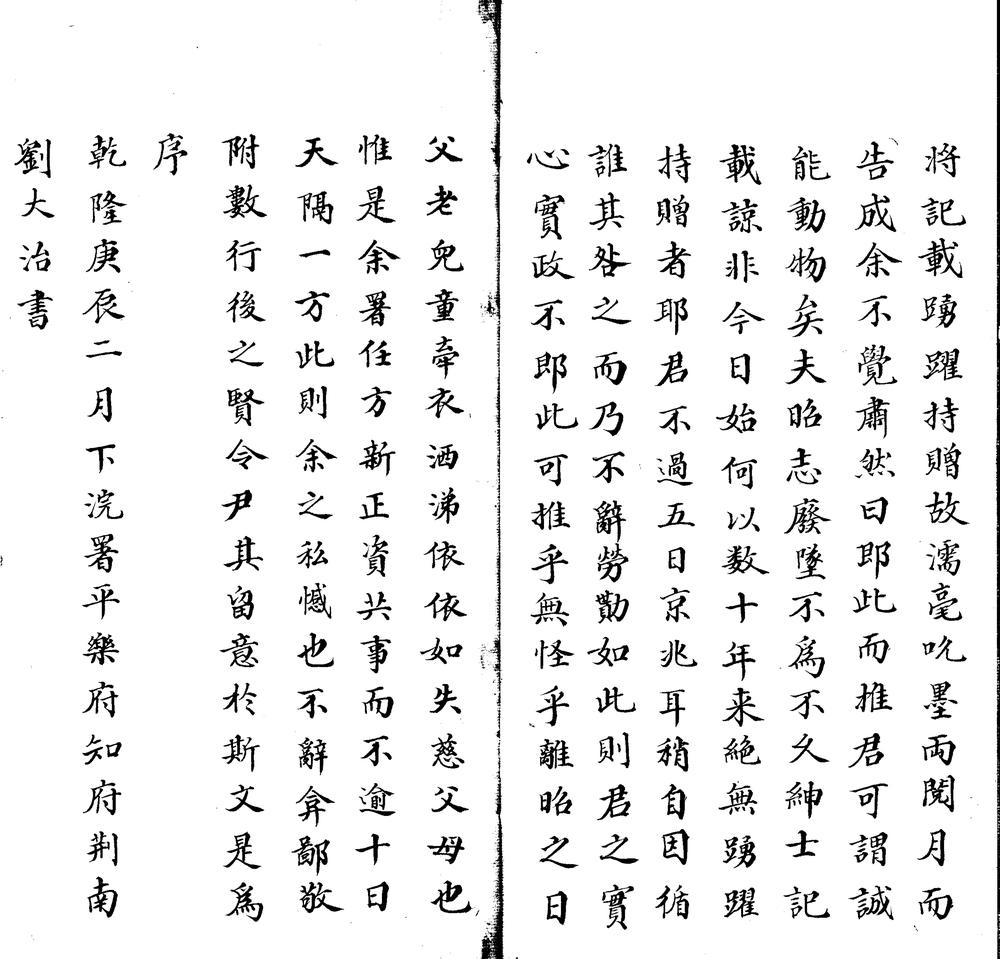 將記載踴躍持贈故濡毫吮墨兩閱月而
告成余不覺肅然曰即此而推君可謂誠
能動物矣夫昭志廢墜不為不久紳士記
載諒非今日始何以数十年来絶無踴躍
持贈者耶君不過五日京兆耳稍自因循
誰其咎之而乃不辭勞勩如此則君之實
心實政不即此可推乎無怪乎離昭之日
父老兒童牽衣洒涕依依如失慈父母也
惟是余署任方新正資共事而不逾十日
天隔一方此則余之私憾也不辭弇鄙敬
附數行後之賢令尹其留意於斯文是為
序
乾隆庚辰二月下浣署平樂府知府荆南
劉大治書